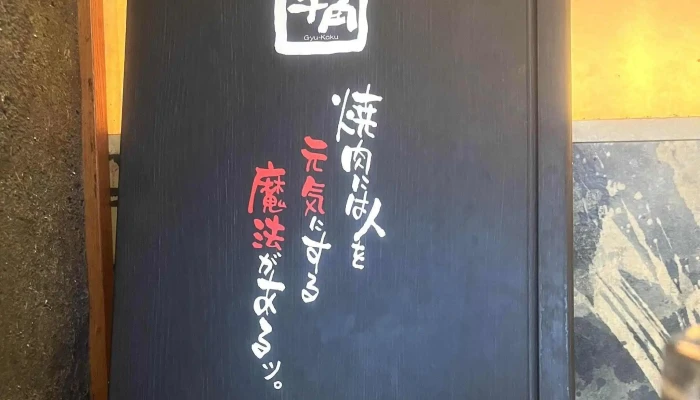 牛角
Gyu-Kaku
焼肉には人を
元気にする
魔法があるッ。